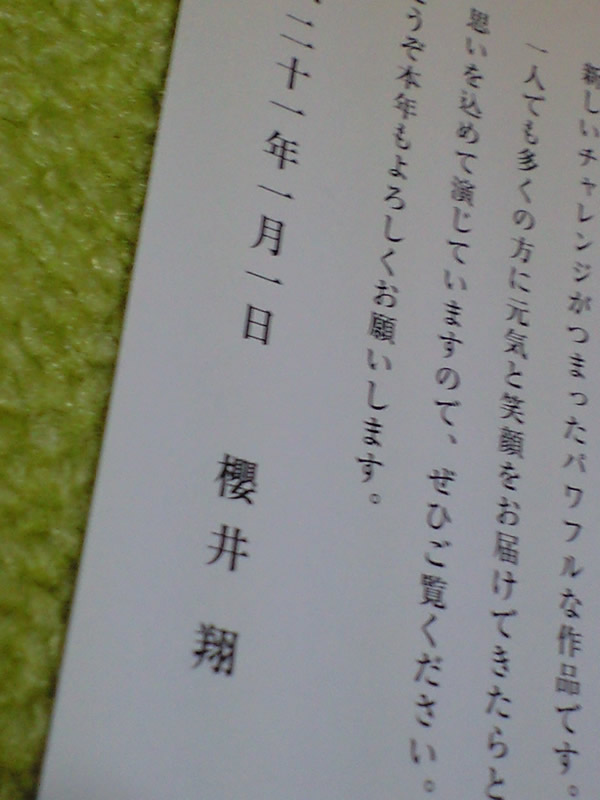 新しいチャレンジがつまったパワフルな作品です。
一人でも多くの方に元気と笑顔をお届けできたらと
思いを込めて演じていますので、ぜひご覧ください。
うぞ本年もよろしくお願いします。
二十一年一月一日 櫻井 翔